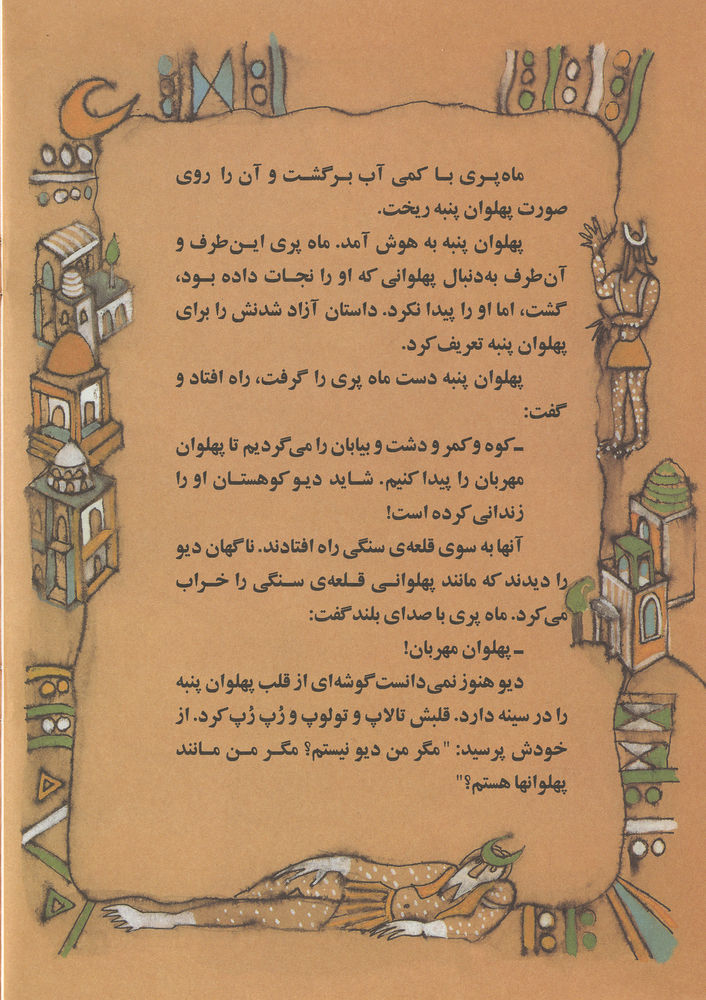 ماه‌پری با کمی آب برگشت و آن را روی
صورت پهلوان پنبه ریخت.
پهلوان پنبه به هوش آمد. ماه پری این‌طرف و
آن‌طرف به‌دنبال پهلوانی که او را نجات داده بود،
گشت، اما او را پیدا نکرد. داستان آزاد شدنش را برای
پهلوان پنبه تعریف کرد.
پهلوان پنبه دست ماه پری را گرفت، راه افتاد و
گفت:
ـ کوه و کمر و دشت و بیابان را می‌گردیم تا پهلوان
مهربان را پیدا کنیم. شاید دیو کوهستان او را
زندانی کرده است!
آنها به سوی قلعه‌ی سنگی راه افتادند. ناگهان دیو
را دیدند که مانند پهلوانی قلعه‌ی سنگی را خراب
می‌کرد. ماه پری با صدای بلند گفت:
ـ پهلوان مهربان!
دیو هنوز نمی‌دانست گوشه‌ای از قلب پهلوان پنبه
را در سینه دارد. قلبش تالاپ و تولوپ و رُپ رُپ کرد. از
خودش پرسید: "مگر من دیو نیستم؟ مگر من مانند
پهلوانها هستم؟"